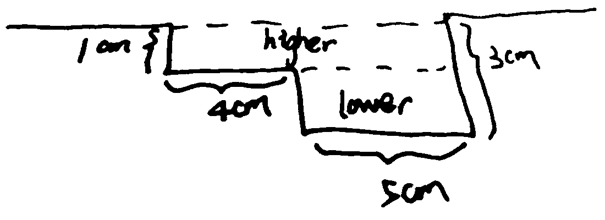 1 cm
higher
3 cm
4cm
lower
5cm